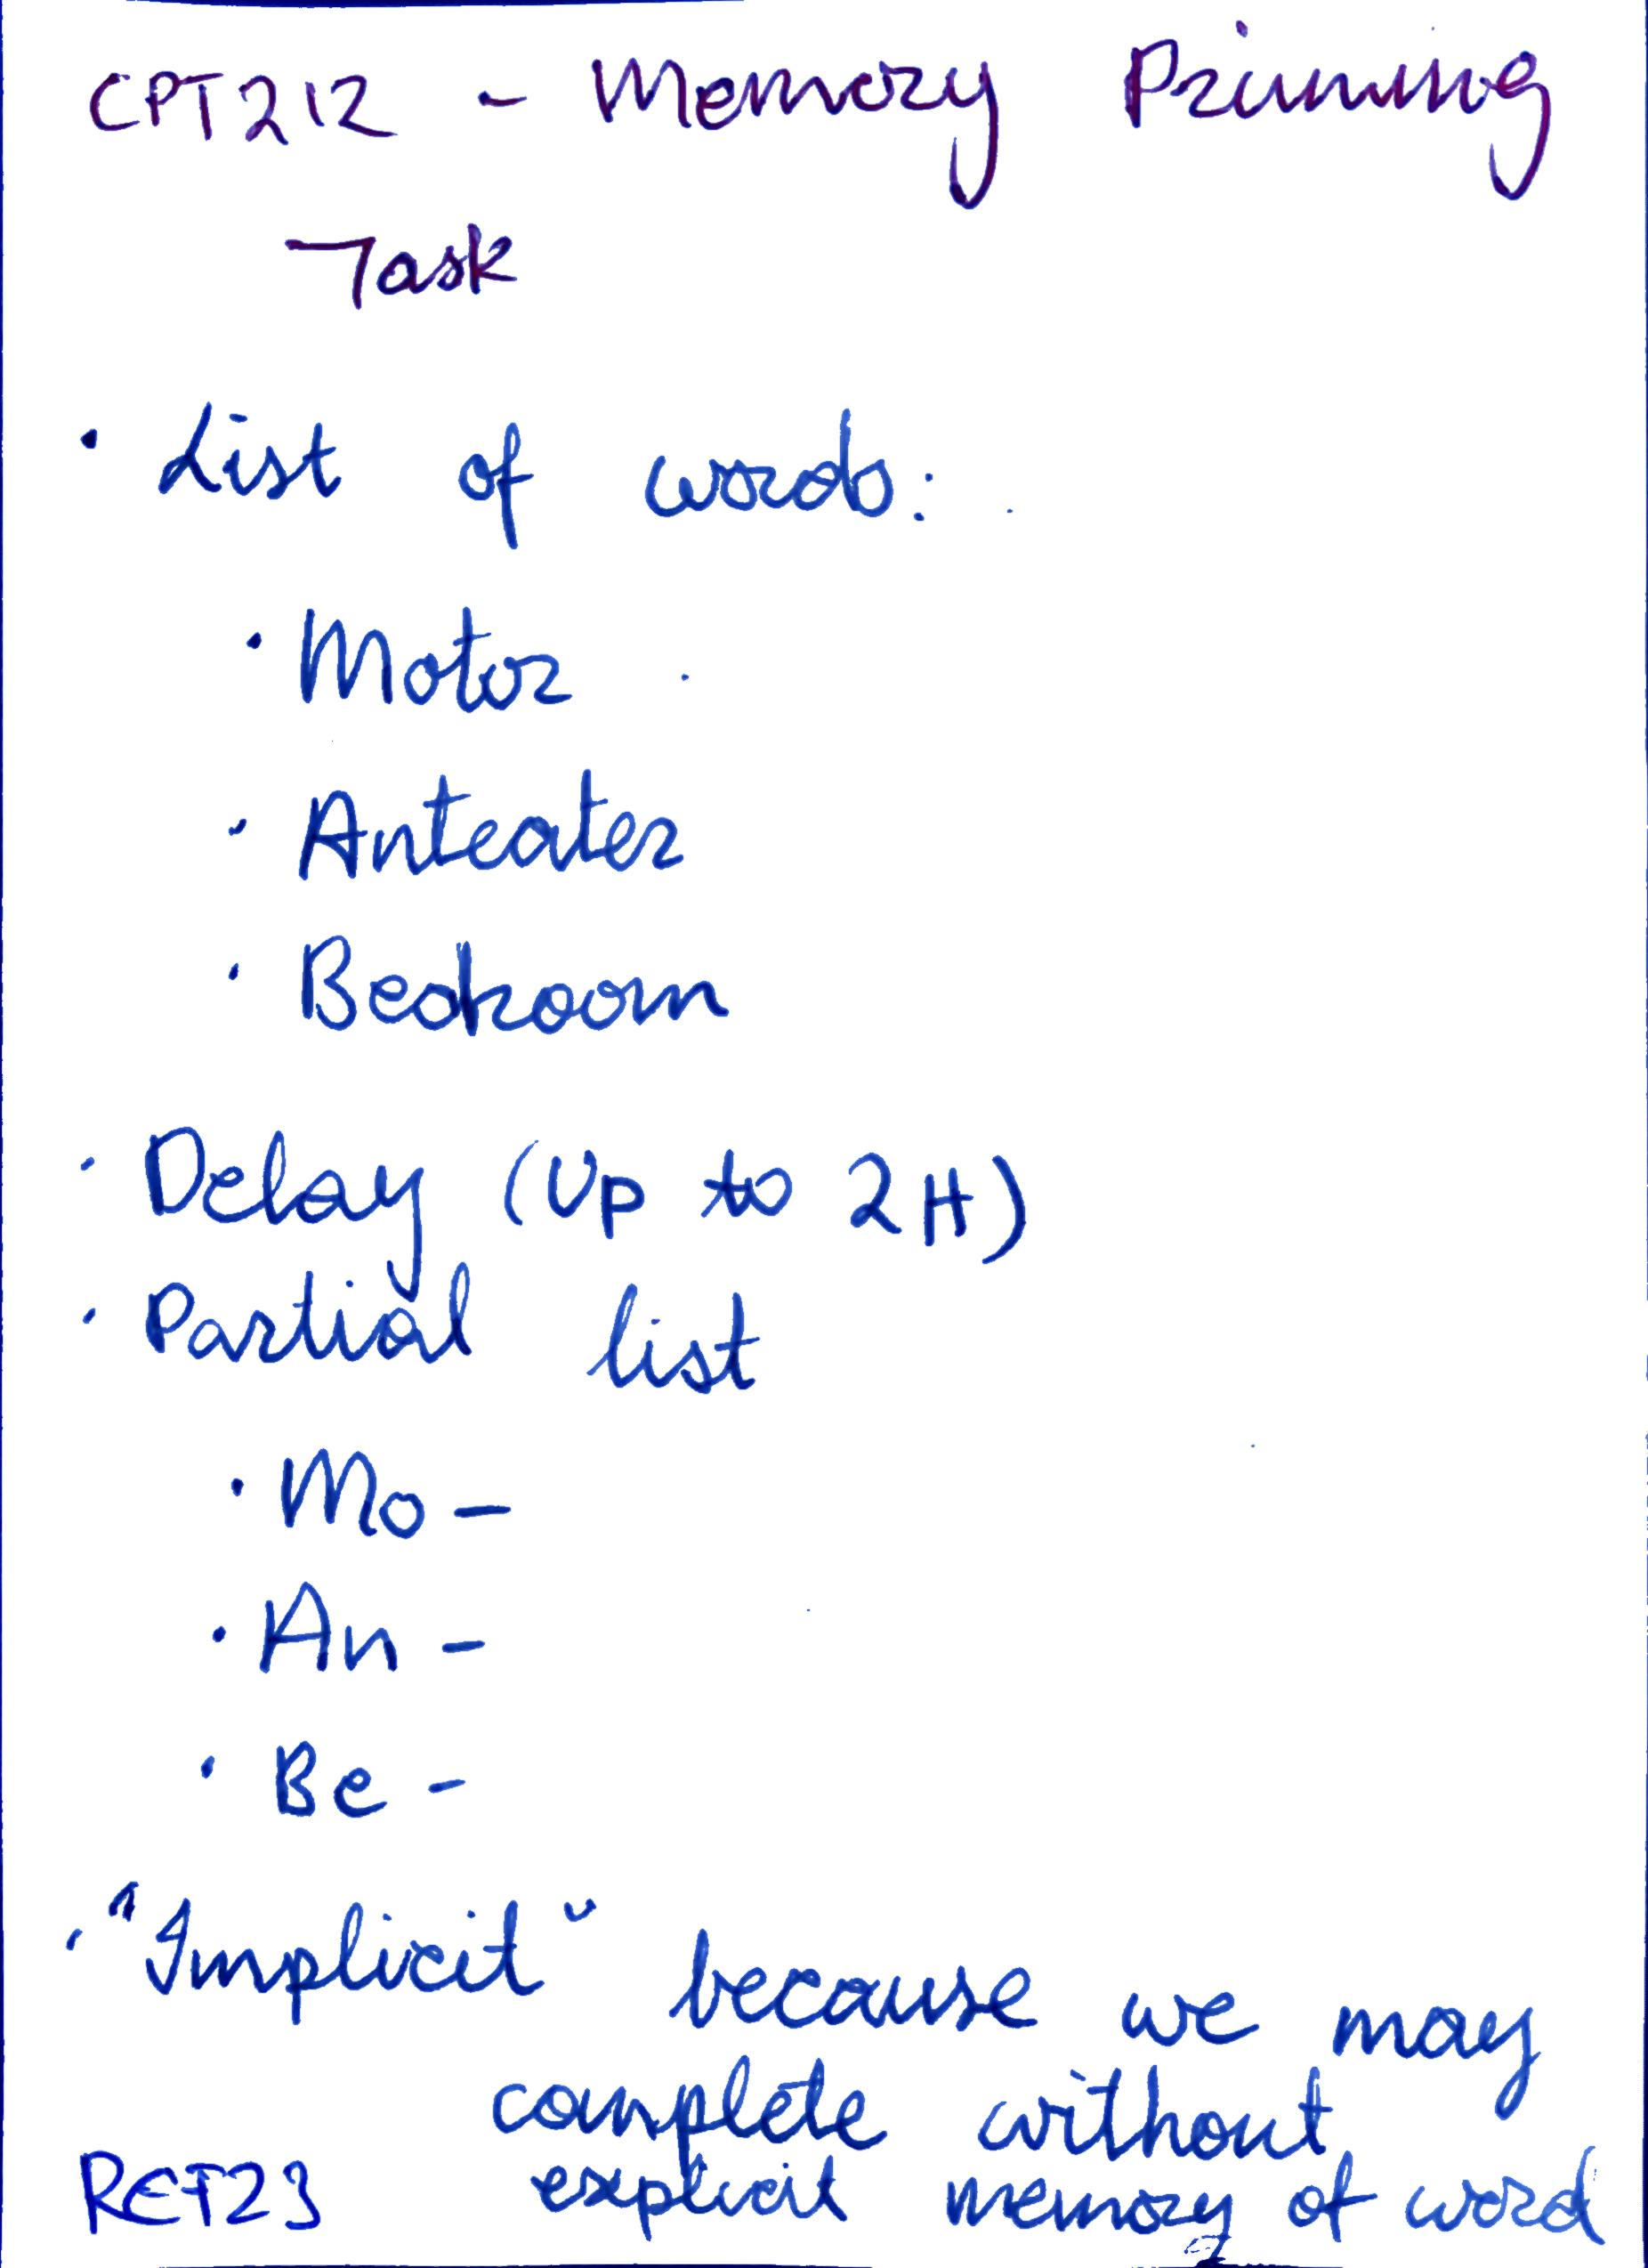 CPT212 - Memory Priming
Task
• List of words:
• Motor
• Anteater
• Bedroom
• Delay (Up to 2H)
• Partial list
• Mo -
• An -
• Be -
• "Implicit" because we may
complete without
REF23 explicit memory of word